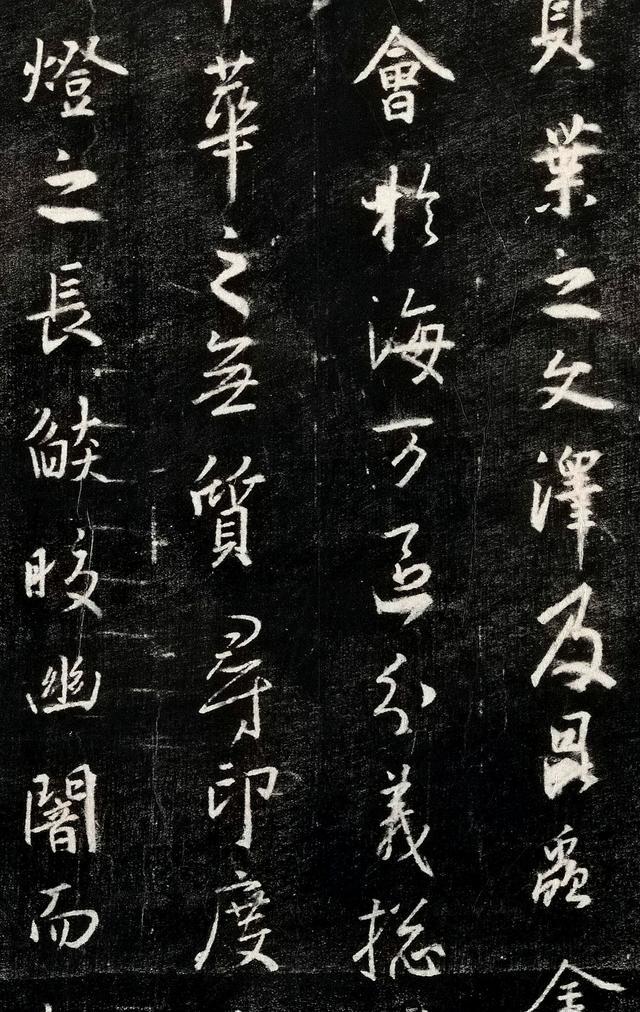 貝葉之文澤及昆蟲金
會於海万區分義揔
華之無質尋印度
燈之長焰皎幽闇而